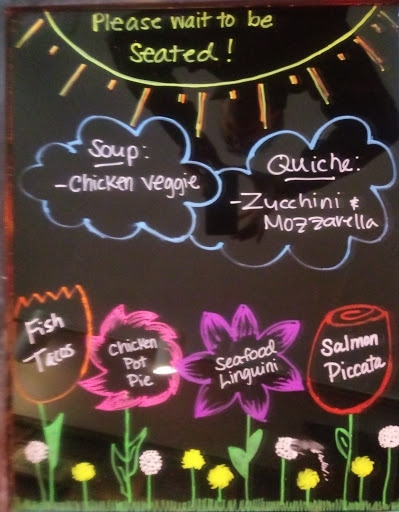 Please wait to be
Seated!
Soup:
-Chicken veggie
Quiche:
-Zucchini &
Mozzarella
Fish
Tacos
Chicken
Pot
Pie
Seafood
Linguini
Salmon
Piccata